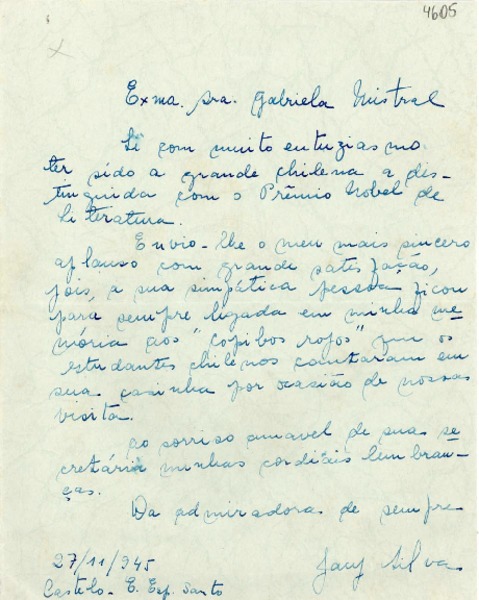 4605
Exma. Sra. Gabriela Mistral
Li com muito entuziasmo
ter sido a grande chilena a dis-
tinguida com o Prêmio Nobel de
Literatura.
Envio-lhe o meu mais sincero
aplauso com grande satisfação,
pois, a sua simpática pessoa ficou
para sempre ligada em minha me-
mória aos "copihos rojos" que os
estudantes chilenos cantaram em
sua casinha por ocasião de nossa
visita.
Ao sorriso amavel de sua se-
cretária minhas cordiais lembran-
ças.
Da admiradora de sempre
27/11/945
Castelo - E. Esp. Santo
Silva